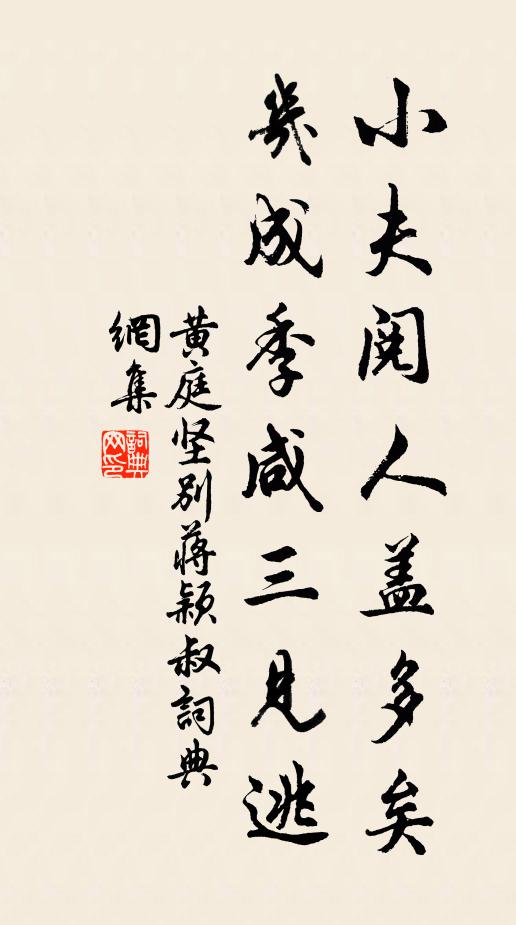 小夫阅人盖多矣
几成季咸三见逃
黄庭坚别蒋颖叔詞典
網集
詞典网印